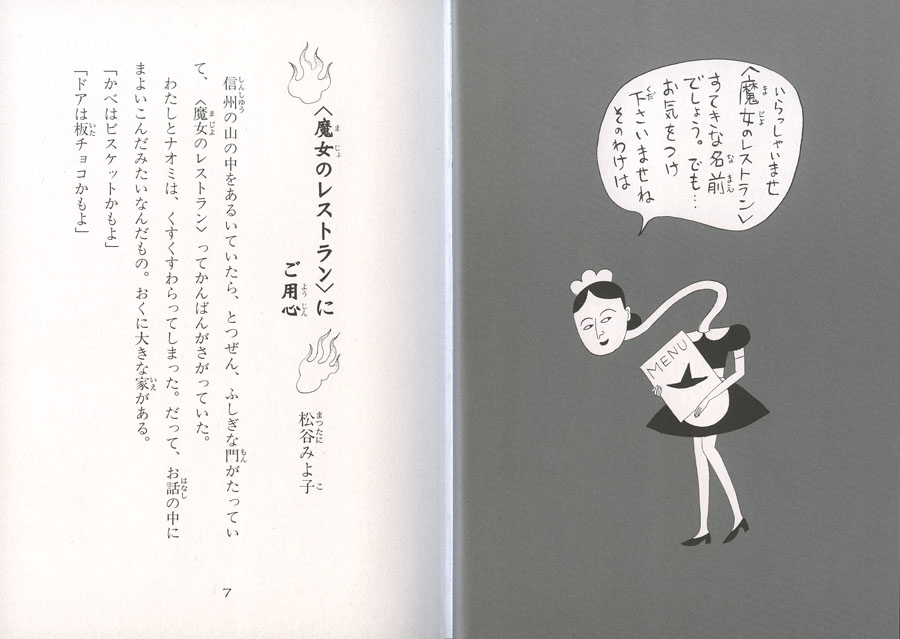 いらっしゃいませ
〈魔女のレストラン〉
すてきな名前
でしょう。でも…
お気をつけ
下さいませね
そのわけは
MENU
〈魔女のレストラン〉に
ご用心
松谷みよ子
信州の山の中をあるいていたら、とつぜん、ふしぎな門がたってい
て、〈魔女のレストラン〉ってかんばんがさがっていた。
わたしとナオミは、くすくすわらってしまった。だって、お話の中に
まよいこんだみたいなんだもの。おくに大きな家がある。
「かべはビスケットかもよ」
「ドアは板チョコかもよ」
7